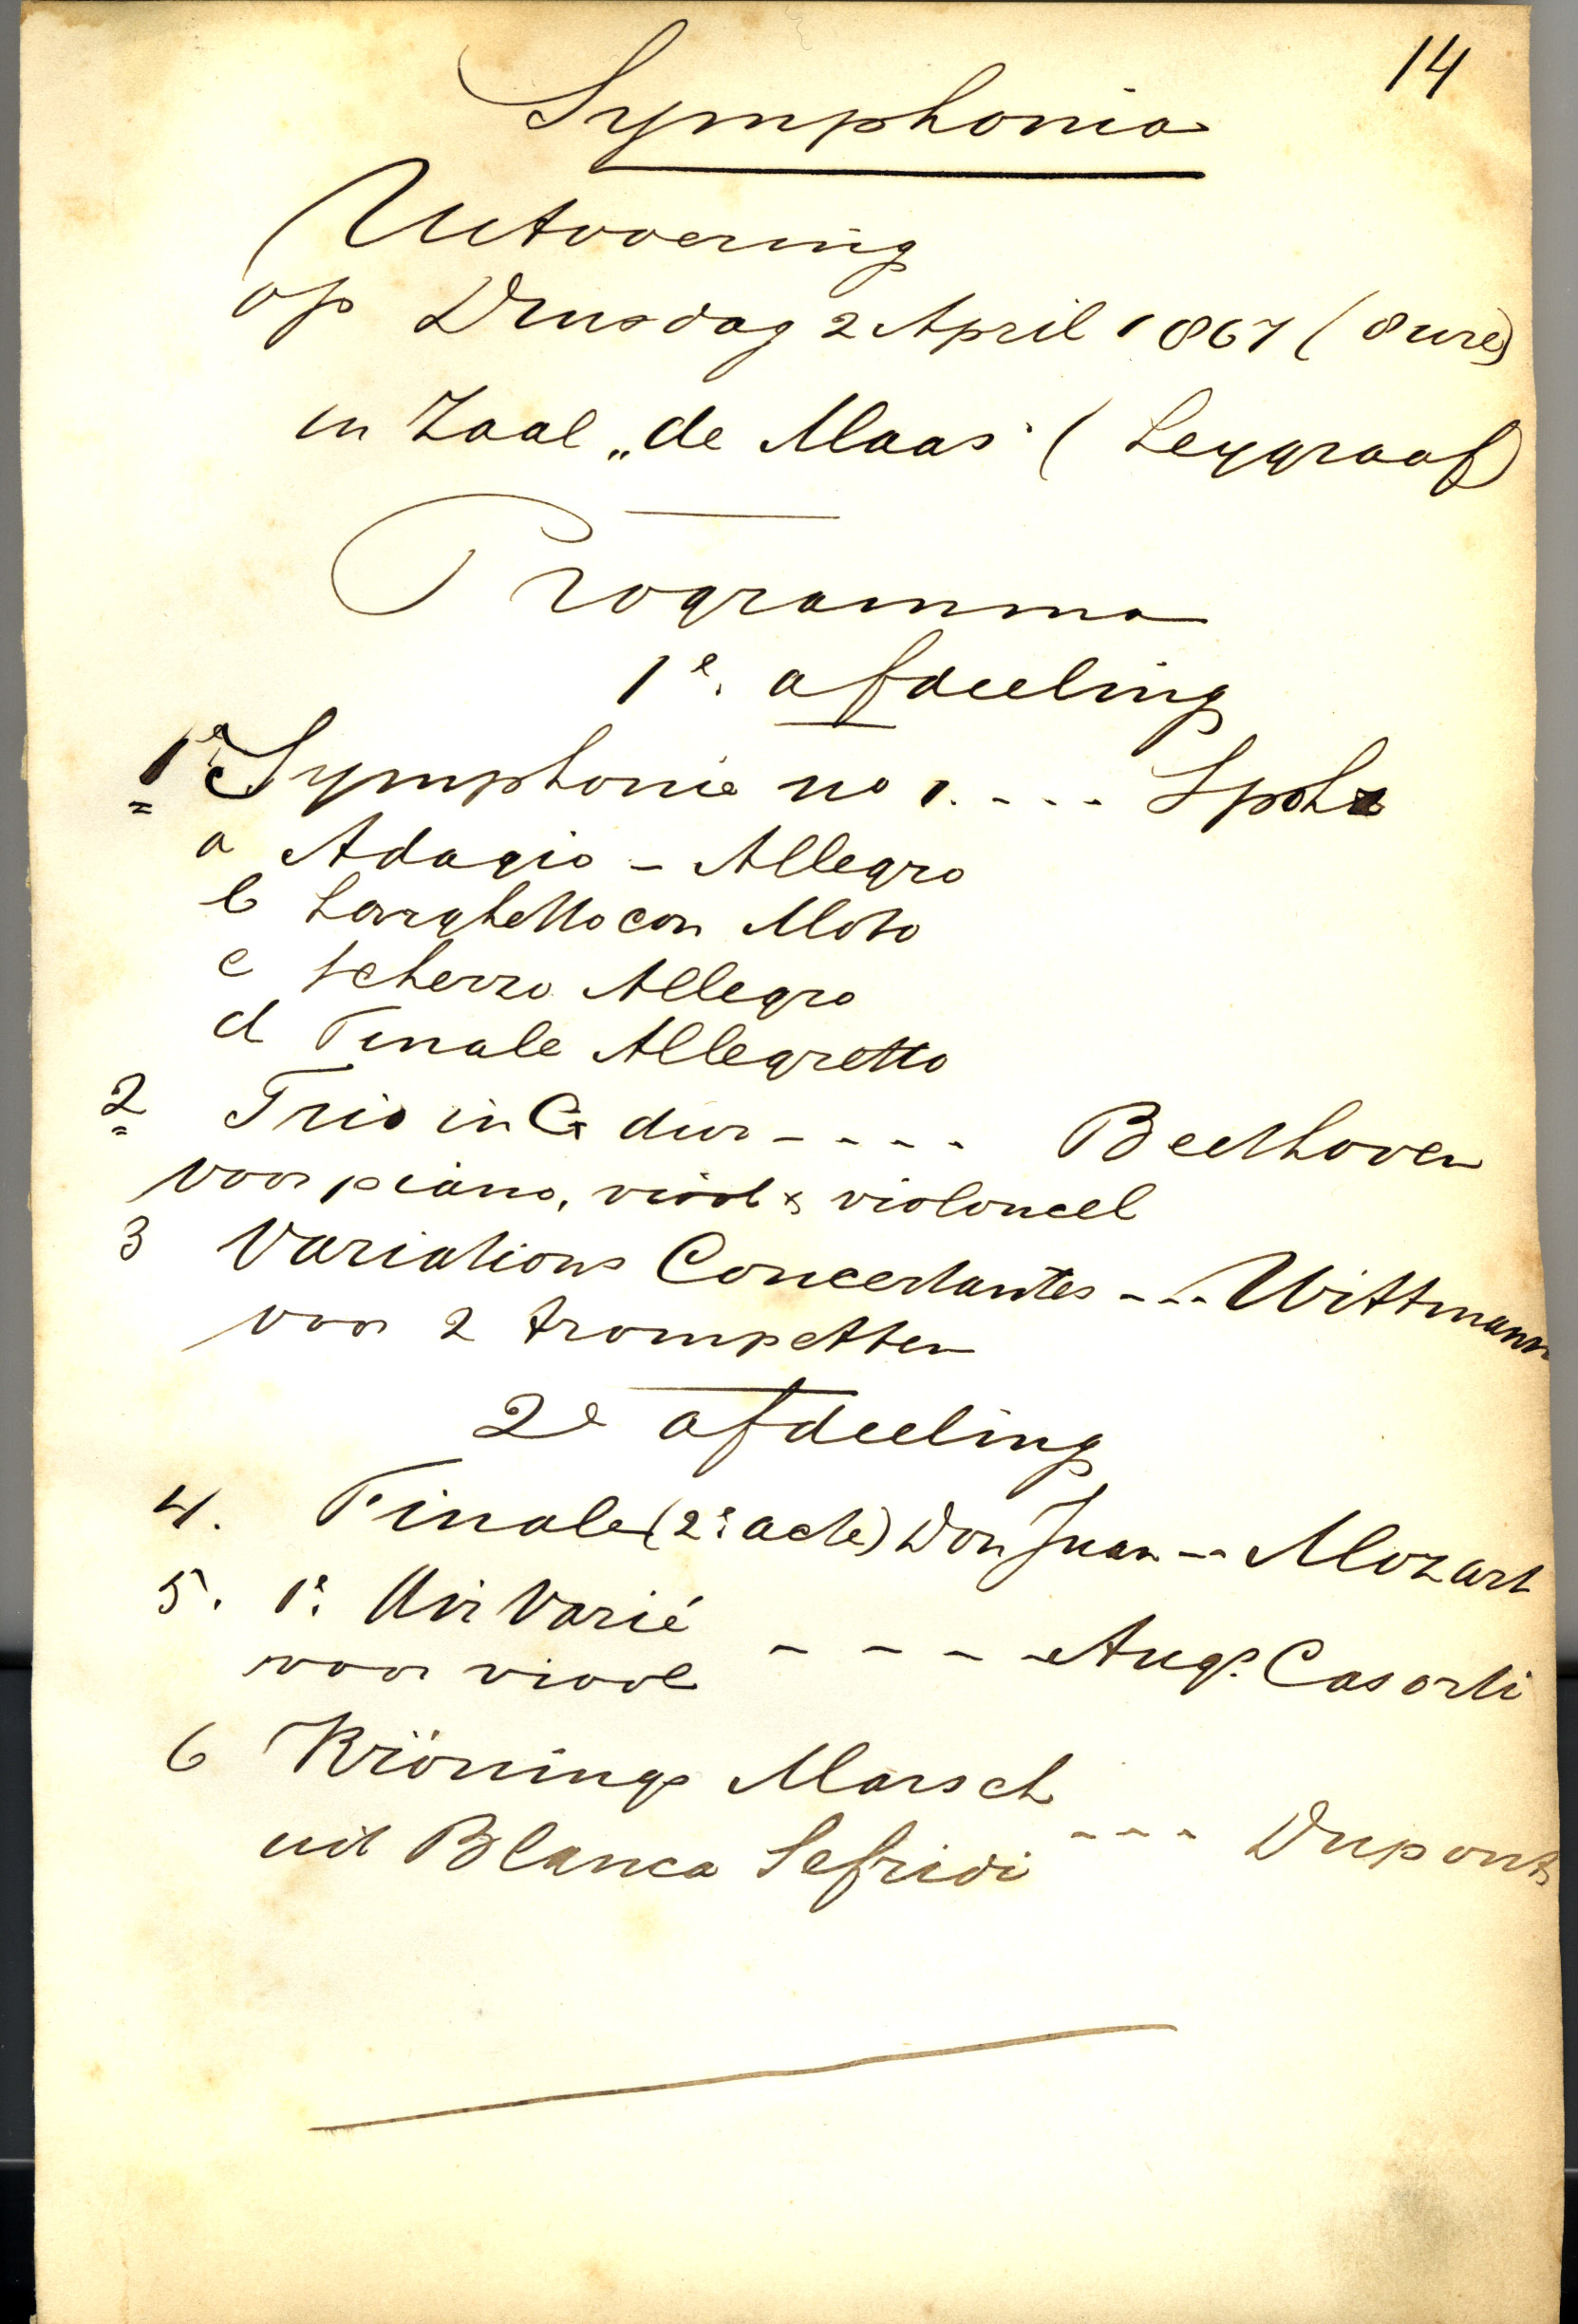 14
Symphonia
Uitvoering
op Dinsdag 2 April 1867 (8 ure)
in Zaal „de Maas" (Leygraaf)
Programma
1e. afdeeling
1e Symphonie no 1. - - - - Spohr
a Adagio - Allegro
b Larghetto con Moto
c Scherzo Allegro
d Finale Allegretto
2 Trio in G dur - - - - - Beethoven
voor piano, viool & violoncel
3 Variations Concertantes - - - Wittmann
voor 2 trompetten
2e afdeeling
4. Finale (2e acte) Don Juan -- Mozart
5. 1e Air Varié
voor viool - - - - Aug. Casorti
6 Krönings Marsch
uit Blanca Sefridi - - - Dupont